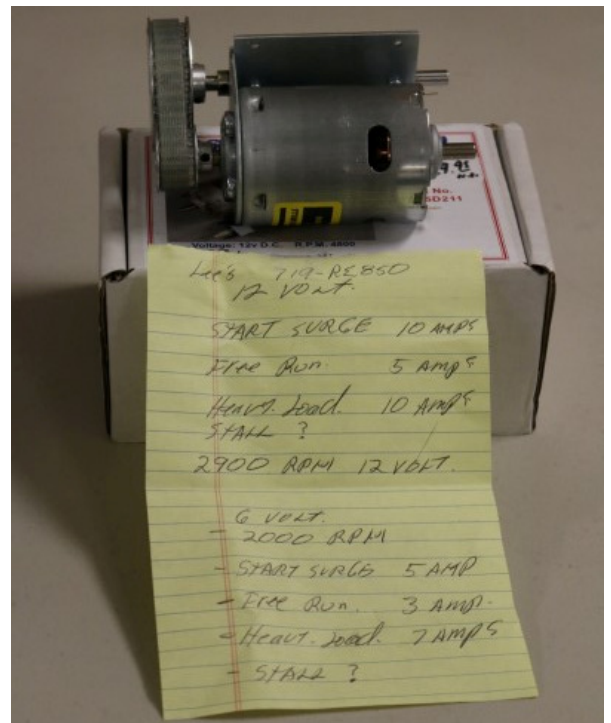 9.95
No.
SD211
Voltage: 12v D.C. R.P.M. 4800
Lee's 719-RE850
12 VOLT.
START SURGE 10 AMPS
Free Run. 5 AMPS
Heavy. Load. 10 AMPS
STALL ?
2900 RPM 12 VOLT.
6 VOLT.
- 2000 RPM
- START SURGE 5 AMP
- Free Run. 3 AMP.
- Heavy. Load. 7 AMPS
- STALL ?